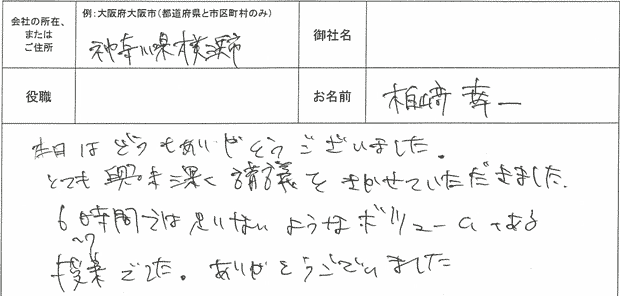 会社の所在、
または
ご住所
例：大阪府大阪市（都道府県と市区町村のみ）
神奈川県横浜市
御社名
役職
お名前
相崎 幸一
本日はどうもありがとうございました。
とても興味深く講義をきかせていただきました。
6時間では足りないようなボリュームある
〜7
授業でした。ありがとうございました